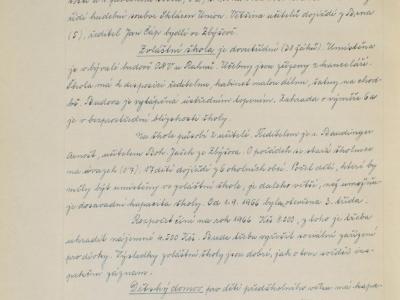 řídí hudební soubor Sklárem Union. Většina učitelů dojíždí z Brna
(5), ředitel Jan Čap bydlí ve Zbýšově.
Zvláštní škola je dvoutřídní (28 žáků). Umístěna
je v bývalé budově ONV u Radnice. Učebny jsou zřízeny z kanceláří.
Škola má k dispozici ředitelnu, kabinet, malou dílnu, šatny na chod-
bě. Budova je vytápěna ústředním topením. Zahrada o výměře 6 a
je v bezprostřední blízkosti školy.
Na škole působí 2 učitelé. Ředitelem je s. Baudinger
Arnošt, učitelem Boh. Jach ze Zbýšova. O pořádek se stará školnice
na úvazek (0'7). 17 dětí dojíždí z 6 okolních obcí. Počet dětí, které by
měly být umístěny ve zvláštní škole, je daleko větší, než umožňu-
je dosavadní kapacita školy. Od 1.9. 1966 byla otevřena 3. třída.
Rozpočet činí na rok 1966 Kčs 8.200, z toho je třeba
uhradit nájemné 4.500 Kčs. Bude třeba vyřešit sociální zařízení
pro dívky. Výsledky zvláštní školy jsou dobré, jak o tom svědčí ins-
pekční záznam.
Dětský domov pro děti předškolního věku má kapa-